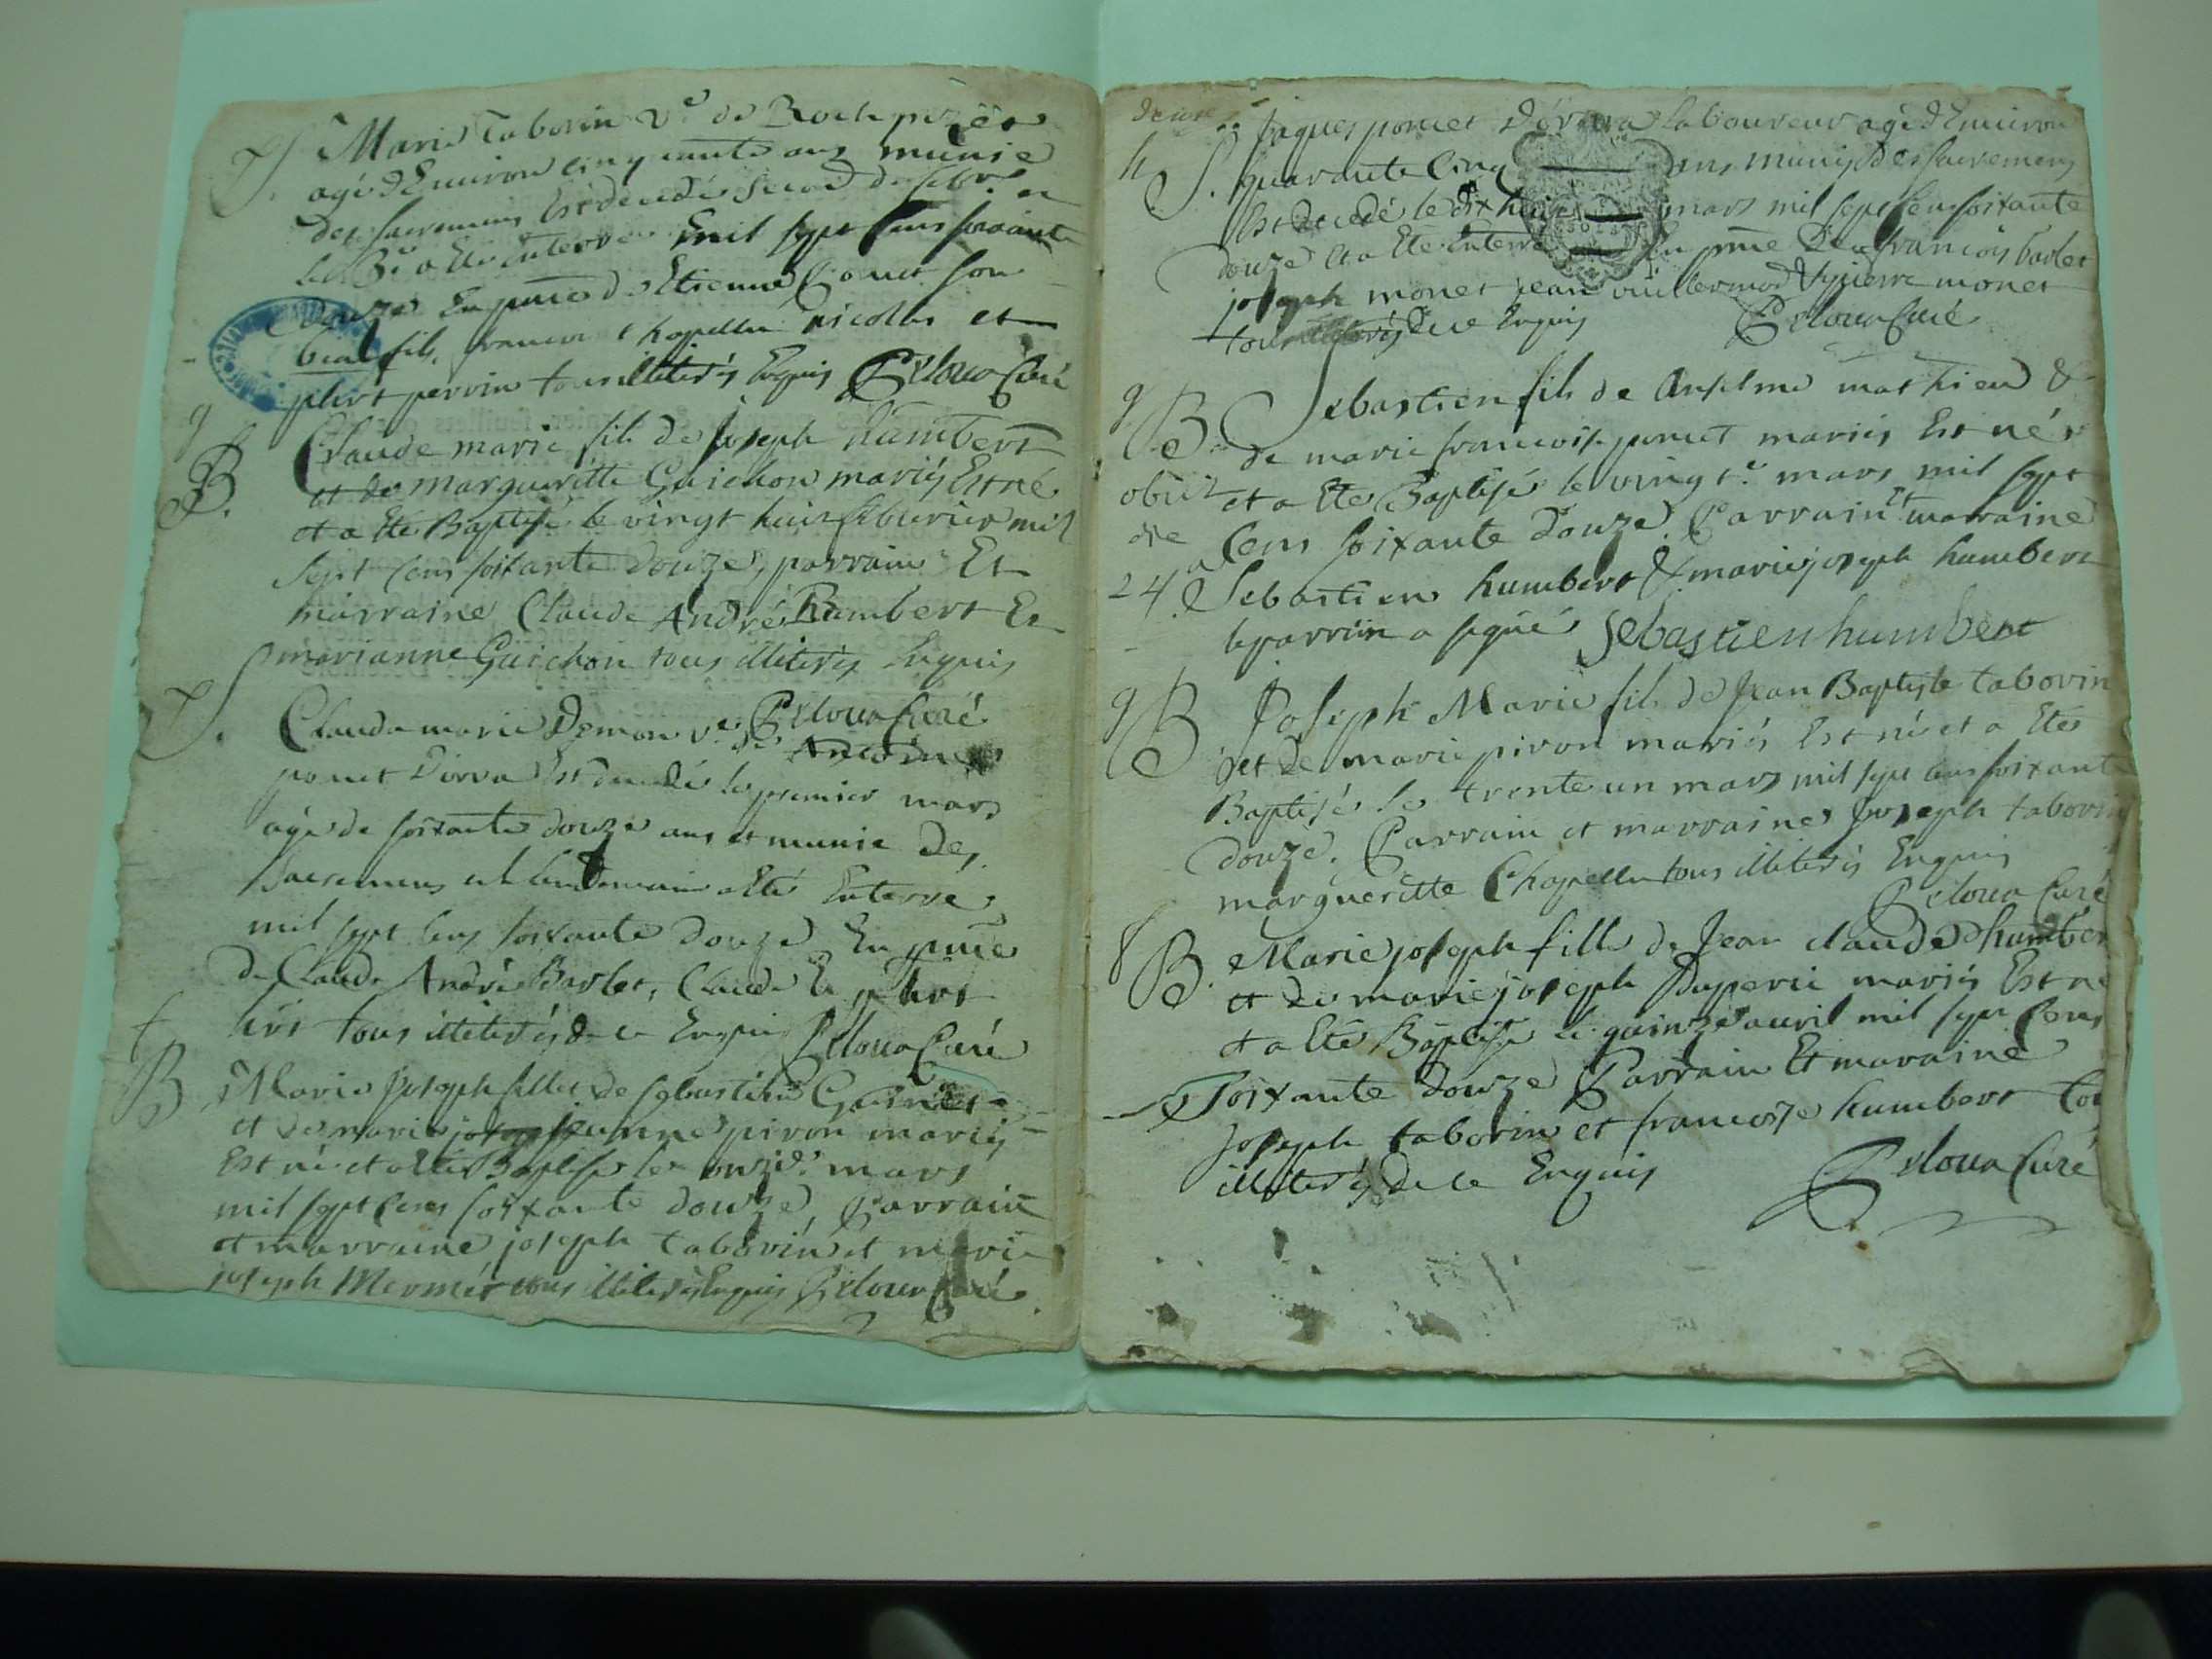 S. Marie Taborin Ve de Roch ponet
agé d'Environ cinquante ans munie
des sacremens Est decedé second de febr. et
le 3e a Eté Enterré mil sept cens soixante
douze En pnce d'Etienne Ponet son
beau fils, francois Chapellu nicolas et
phert perrin tous illiterés Enquis Peloua Curé
g
B. Claude marie fils de joseph humbert
et de margueritte Guichon mariés Est né
et a Eté Baptisé le vingt huit febvrier mil
sept cens soixante douze, parrain Et
marraine Claude André humbert Et
marianne Guichon tous illiterés Enquis
Peloua Curé
S. Claudamarie Dymon ve de Antoine
ponet Dorva Est decedé le premier mars
agé de soixante douze ans et munie des
sacremens et lendemain a Eté Enterré
mil sept cens soixante douze En pnce
de Claude André Barlet, Claude
tous illiterés de ce Enquis Peloua Curé
f
B Marie joseph fille de sebastien
et de marie jeanne piron mariés
Est né et a Eté Baptisé le onze mars
mil sept cens soixante douze, Parrain
et marraine joseph taborin et marie
joseph Mermet tous illiterés Enquis Peloua Curé
h
S. jaques ponet Dorva laboureur agé d'Environ
quarante cinq ans munis des sacremens
Est decedé le dix huit mars mil sept cens soixante
douze et a Eté Enterré En pnce de francois barlet
joseph monet jean vuillermod & pierre monet
tous illiterés de ce Enquis Peloua Curé
g
B Sebastien fils de Anselme mathieu &
de marie francoise ponet mariés Est né
obiit et a Eté Baptisé le vingt e mars mil sept
die cens soixante douze, Parrain et marraine
24 a Sebastien humbert & marie joseph humbert
le parrain a signé Sebastien humbert
g
B Joseph Marie fils de Jean Baptiste taborin
et de marie piron mariés Est né et a Eté
Baptisé le trente un mars mil sept cens soixante
douze. Parrain et marraine joseph taborin
margueritte Chapellu tous illiterés Enquis
Peloua Curé
f
B. Marie joseph fille de Jean claude humbert
et de marie joseph Duperié mariés Est né
et a Eté Baptisé le quinze avril mil sept cens
soixante douze Parrain Et maraine
joseph taborin et francoise humbert
illiterés de ce Enquis Peloua Curé